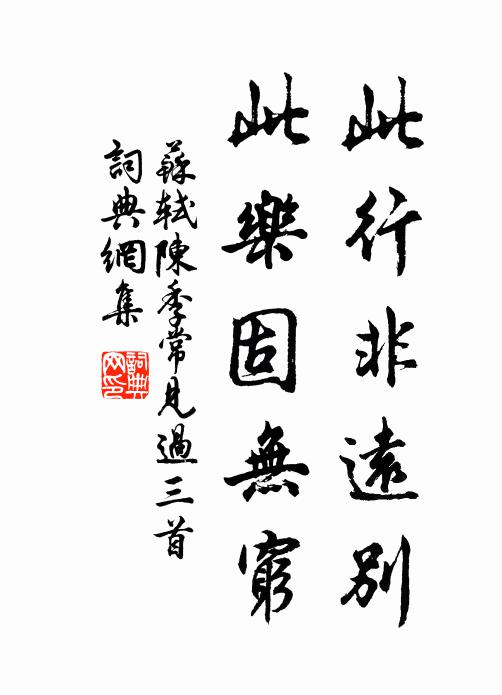 此行非遠別
此樂固無窮
蘇軾陳季常見過三首
詞典網集
詞典网印